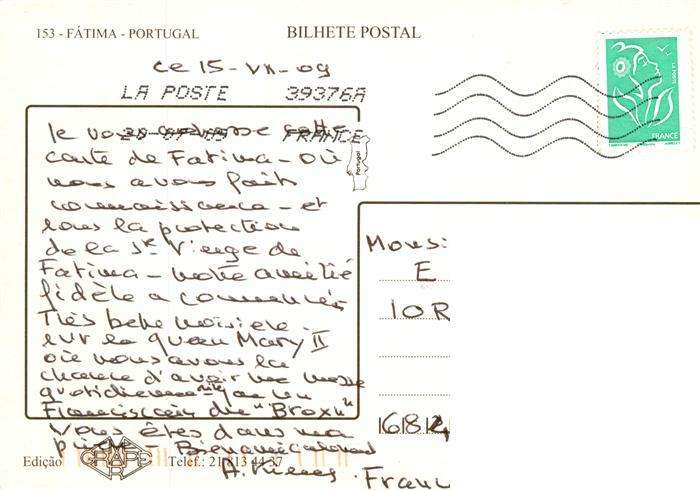 153 - FÁTIMA - PORTUGAL
BILHETE POSTAL
ce 15-VII-09
LA POSTE 39376A
FRANCE
LA POSTE
FRANCE
Je vous adresse cette
carte de Fatima - où
nous avons fait
connaissance - et
sous la protection
de la Ste Vierge de
Fatima - notre amitié
fidèle a commencé
Très belle
sur le Queen Mary II
où nous avons la
chance d'avoir une messe
quotidienne par un
Franciscain du "Bronx"
Vous êtes dans ma
prière Bien amicalement
A.
Portugal
Mons:
E
10R
1681
France
Edição
GRAFER
Telef.: 21 813 44 37